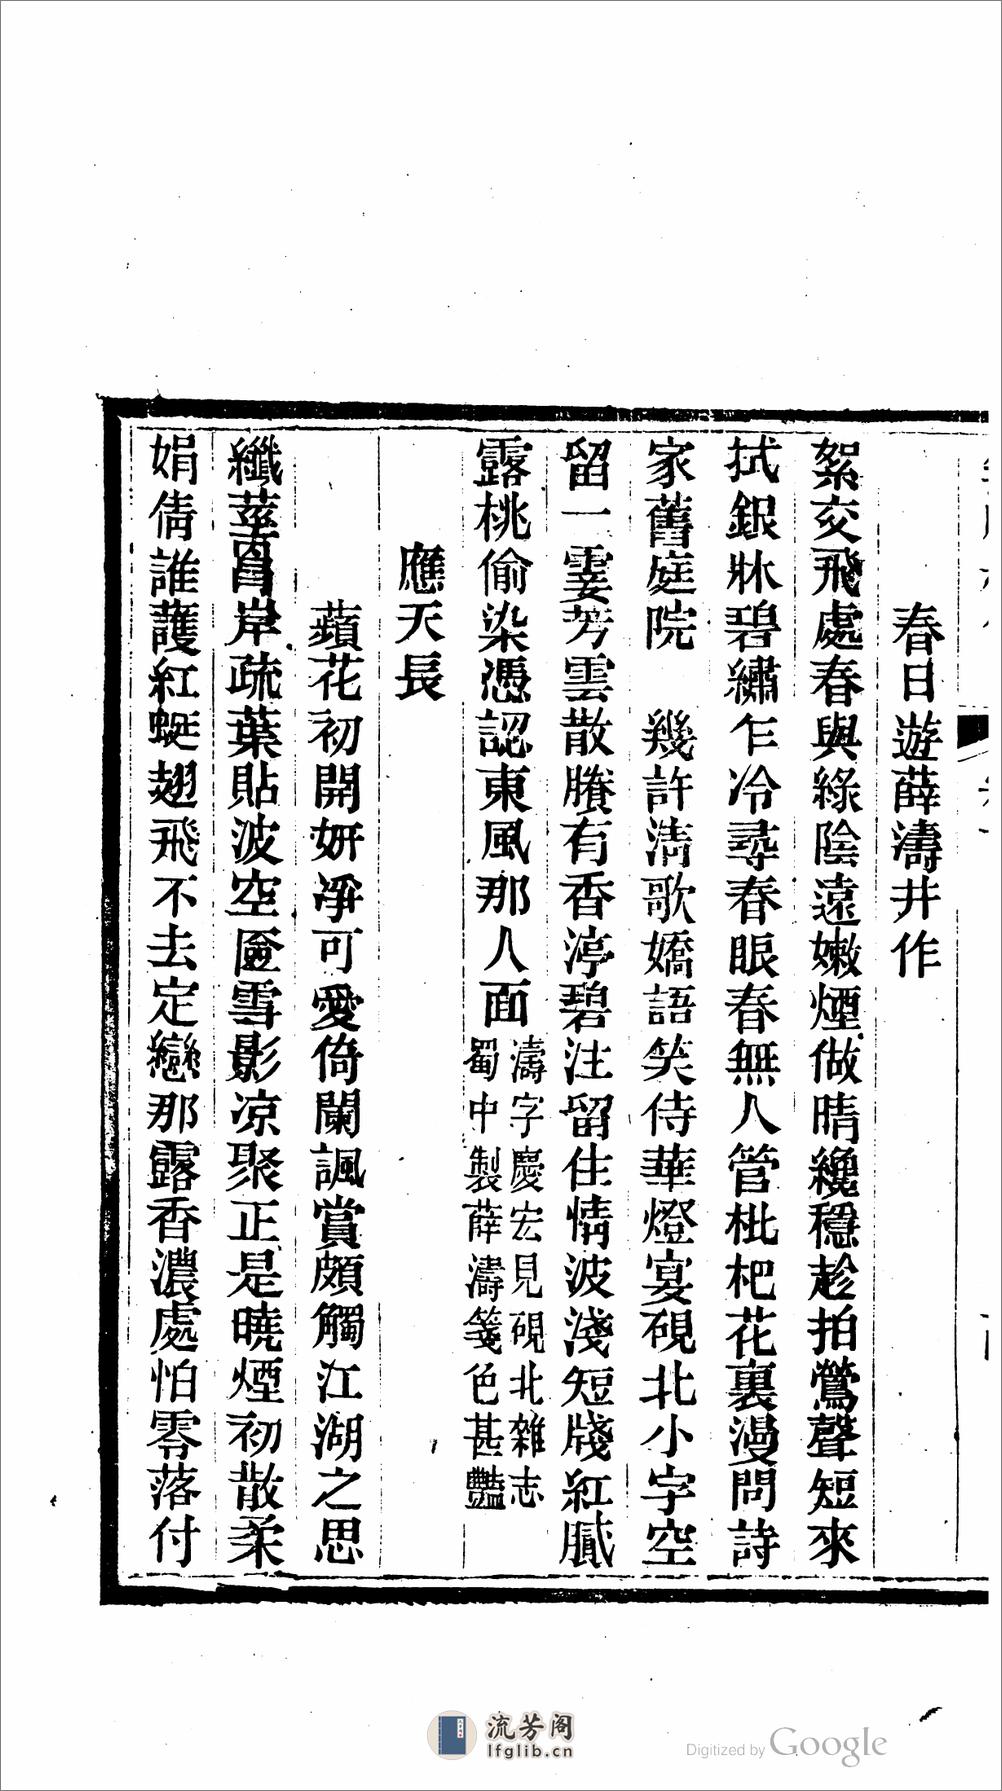 春日遊薛濤井作
絮交飛處春與綠陰遠嫩煙做晴纔穩趁拍鶯聲短來
拭銀牀碧繡乍冷尋春眼春無人管枇杷花裏漫問詩
家舊庭院　幾許清歌嬌語笑侍華燈宴硯北小字空
留一霎芳雲散賸有香渟碧注留住情波淺短牋紅膩
露桃偷染憑認東風那人面濤字慶宏見硯北雜志
蜀中製薛濤箋色甚豔
應天長
蘋花初開妍淨可愛倚闌諷賞頗觸江湖之思
纖莖冐岸疏葉貼波空匳雪影凉聚正是曉煙初散柔
娟倩誰護紅蜓翅飛不去定戀那露香濃處怕零落付
流芳阁
lfglib.cn
Digitized by Google